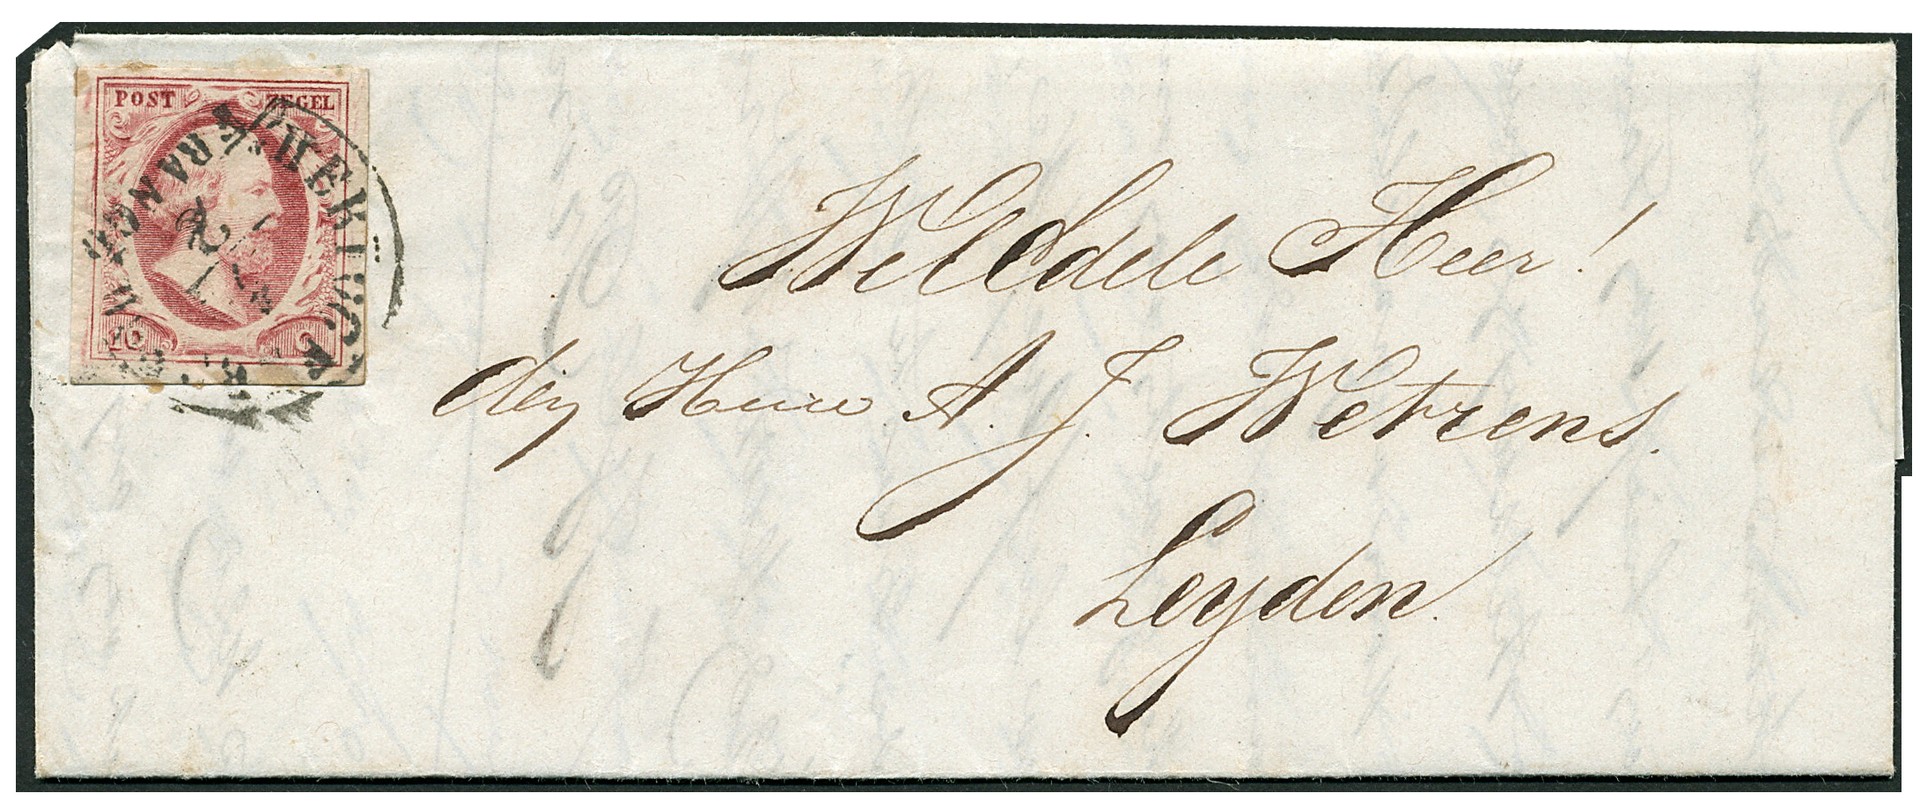 POST ZEGEL
FRANCO
WelEdele Heer!
den Heere A. J. Wetrens.
Leyden.